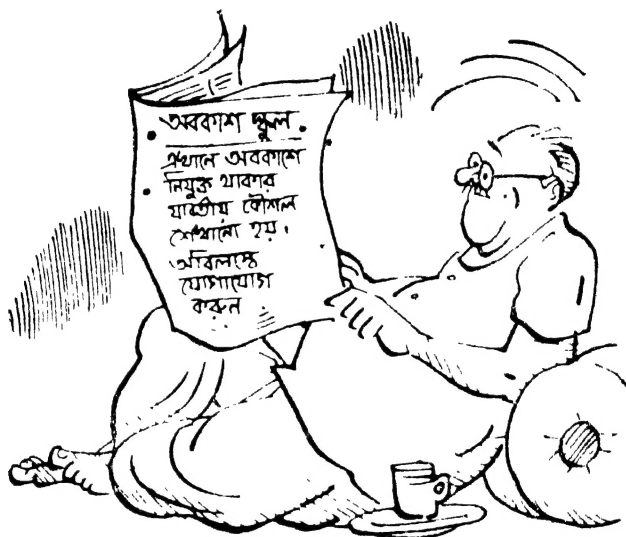 অবকাশ স্কুল.
এখানে অবকাশে
নিযুক্ত থাকার
যাবতীয় কৌশল
শেখানো হয়।
অবিলম্বে
যোগাযোগ
করুন